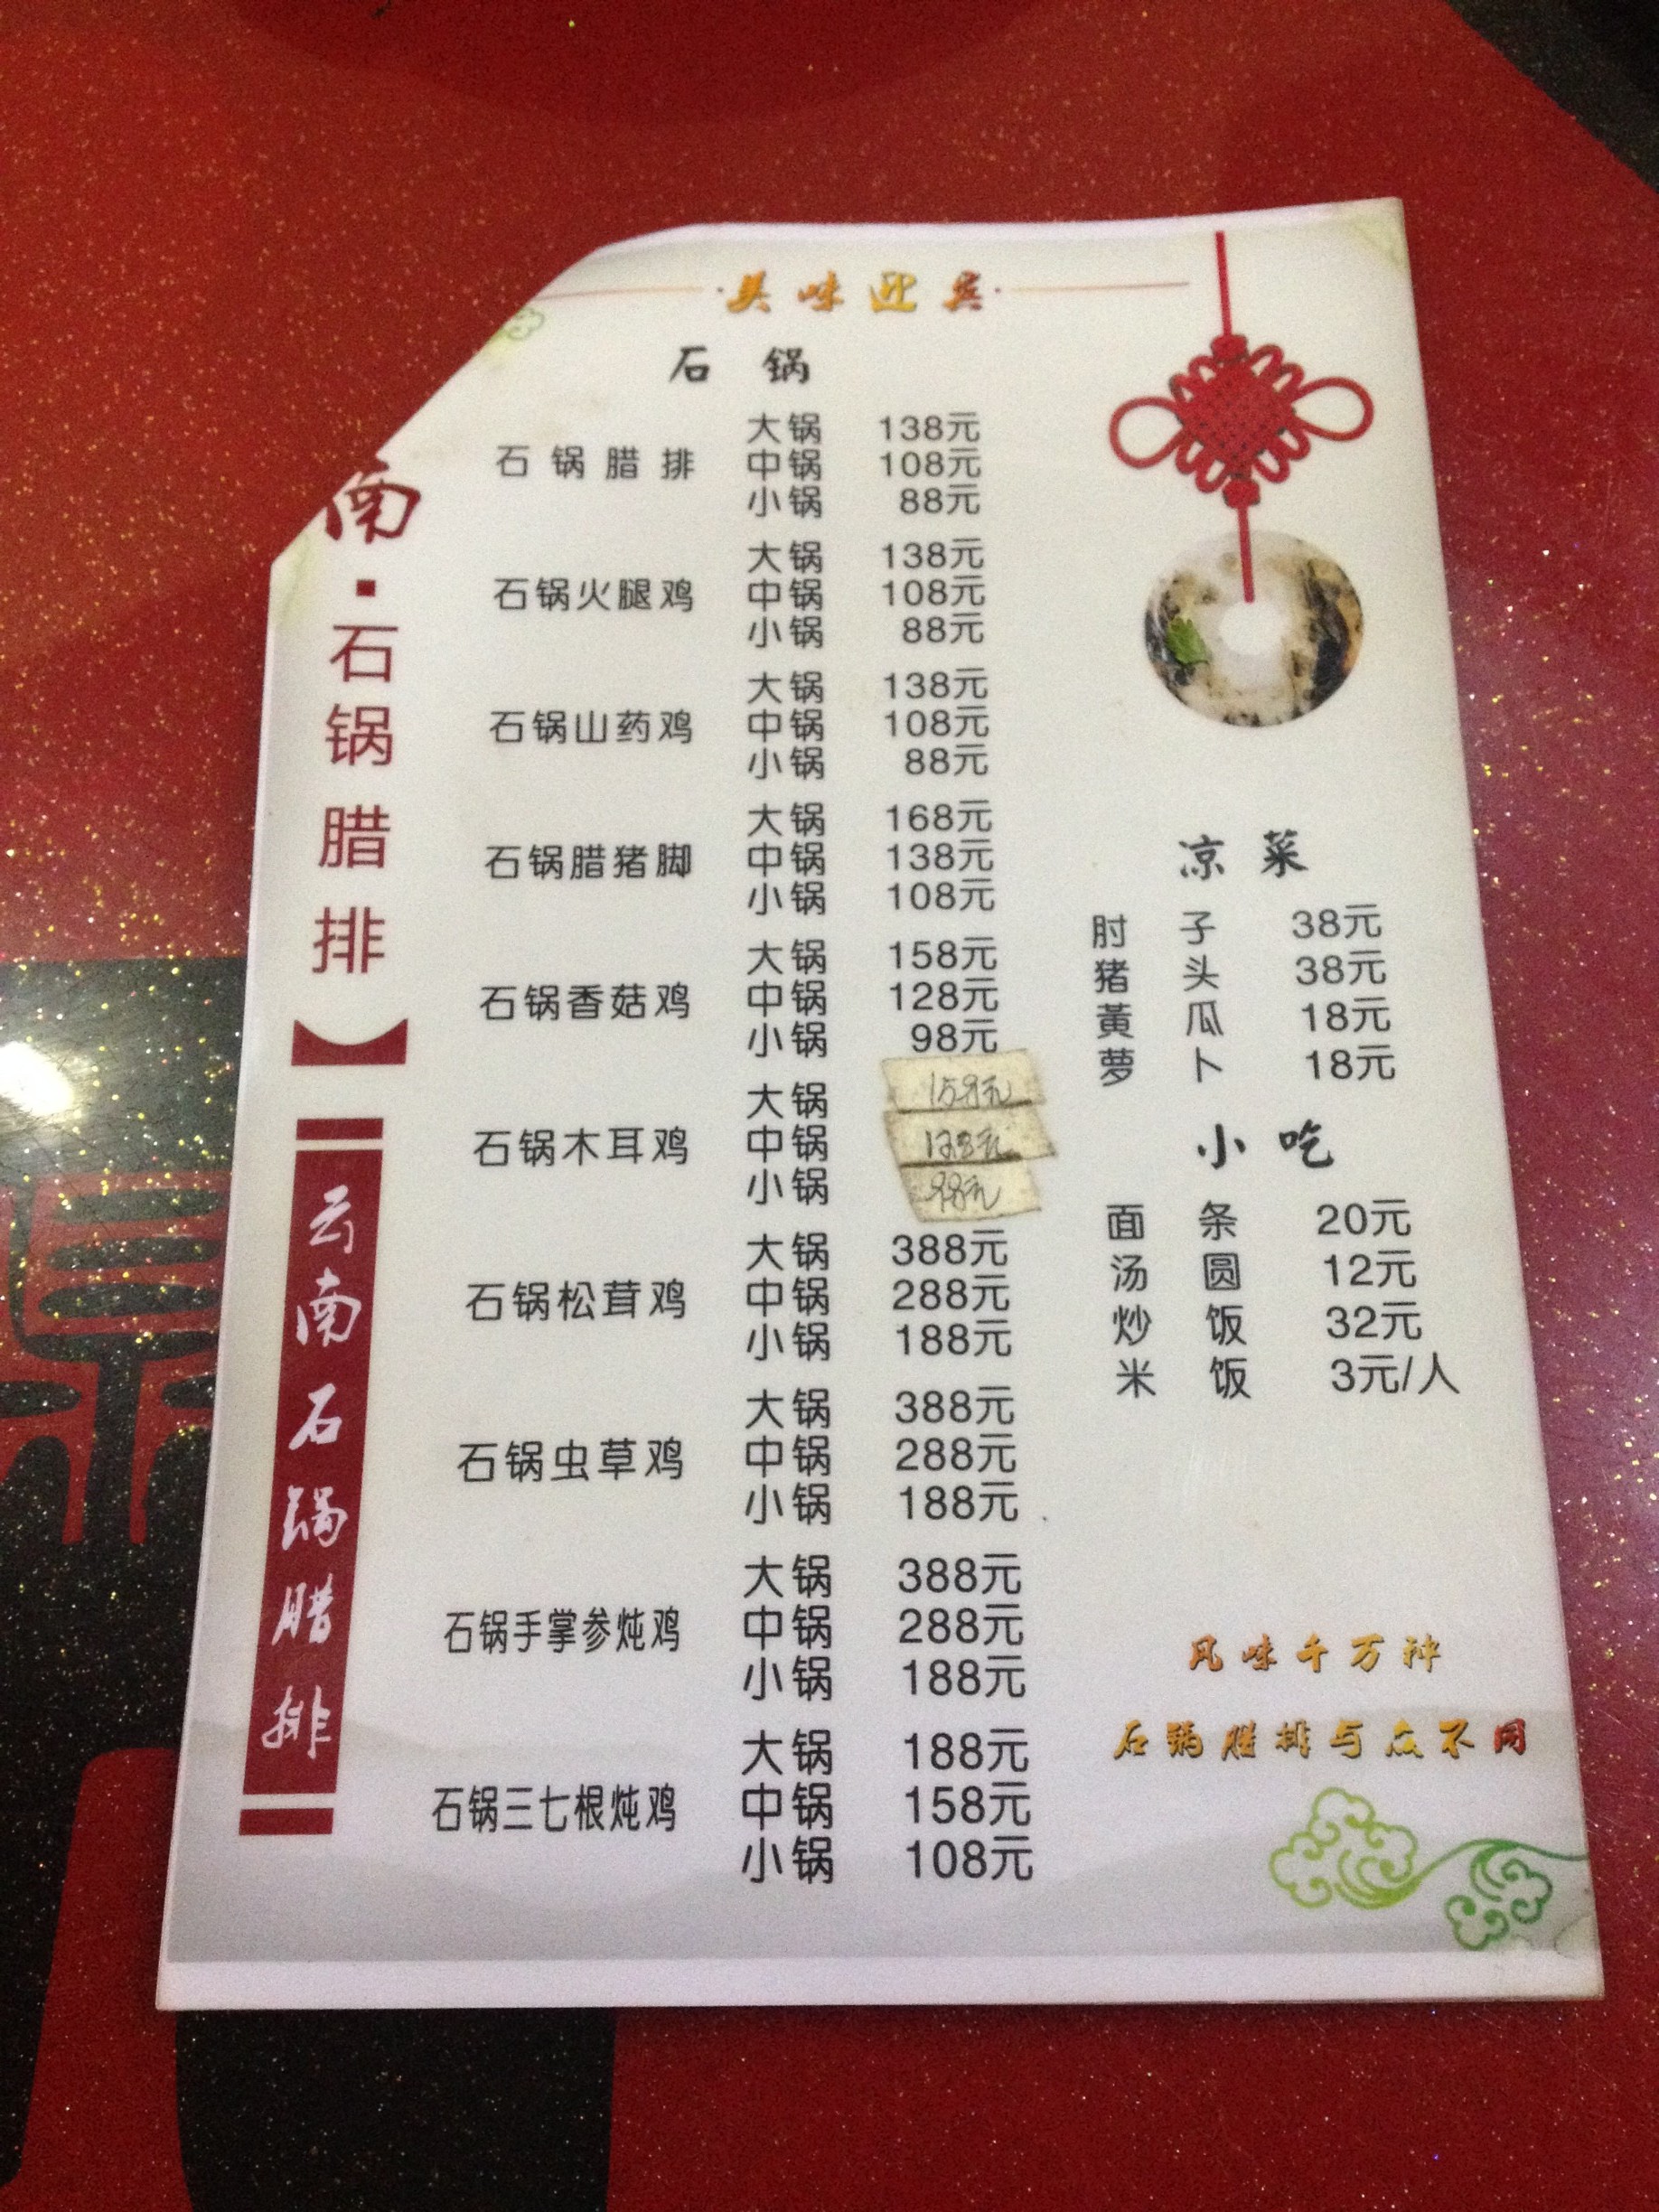 美味迎宾
石锅
石锅腊排
大锅 138元
中锅 108元
小锅 88元
石锅火腿鸡
大锅 138元
中锅 108元
小锅 88元
石锅山药鸡
大锅 138元
中锅 108元
小锅 88元
石锅腊猪脚
大锅 168元
中锅 138元
小锅 108元
石锅香菇鸡
大锅 158元
中锅 128元
小锅 98元
石锅木耳鸡
大锅 158元
中锅 128元
小锅 98元
石锅松茸鸡
大锅 388元
中锅 288元
小锅 188元
石锅虫草鸡
大锅 388元
中锅 288元
小锅 188元
石锅手掌参炖鸡
大锅 388元
中锅 288元
小锅 188元
石锅三七根炖鸡
大锅 188元
中锅 158元
小锅 108元
凉菜
肘子 38元
猪头 38元
黄瓜 18元
萝卜 18元
小吃
面条 20元
汤圆 12元
炒饭 32元
米饭 3元/人
风味千万种
石锅腊排与众不同
南·石锅腊排】
云南石锅腊排